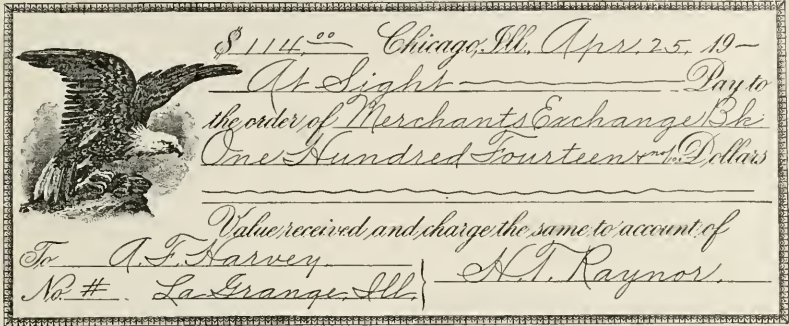 $ 114.00 Chicago, Ill. Apr. 25, 19—
At Sight Pay to
the order of Merchants Exchange Bk
One Hundred Fourteen & no/100 Dollars
Value received and charge the same to account of
To A. F. Harvey
No. # La Grange, Ill. H. T. Raynor.